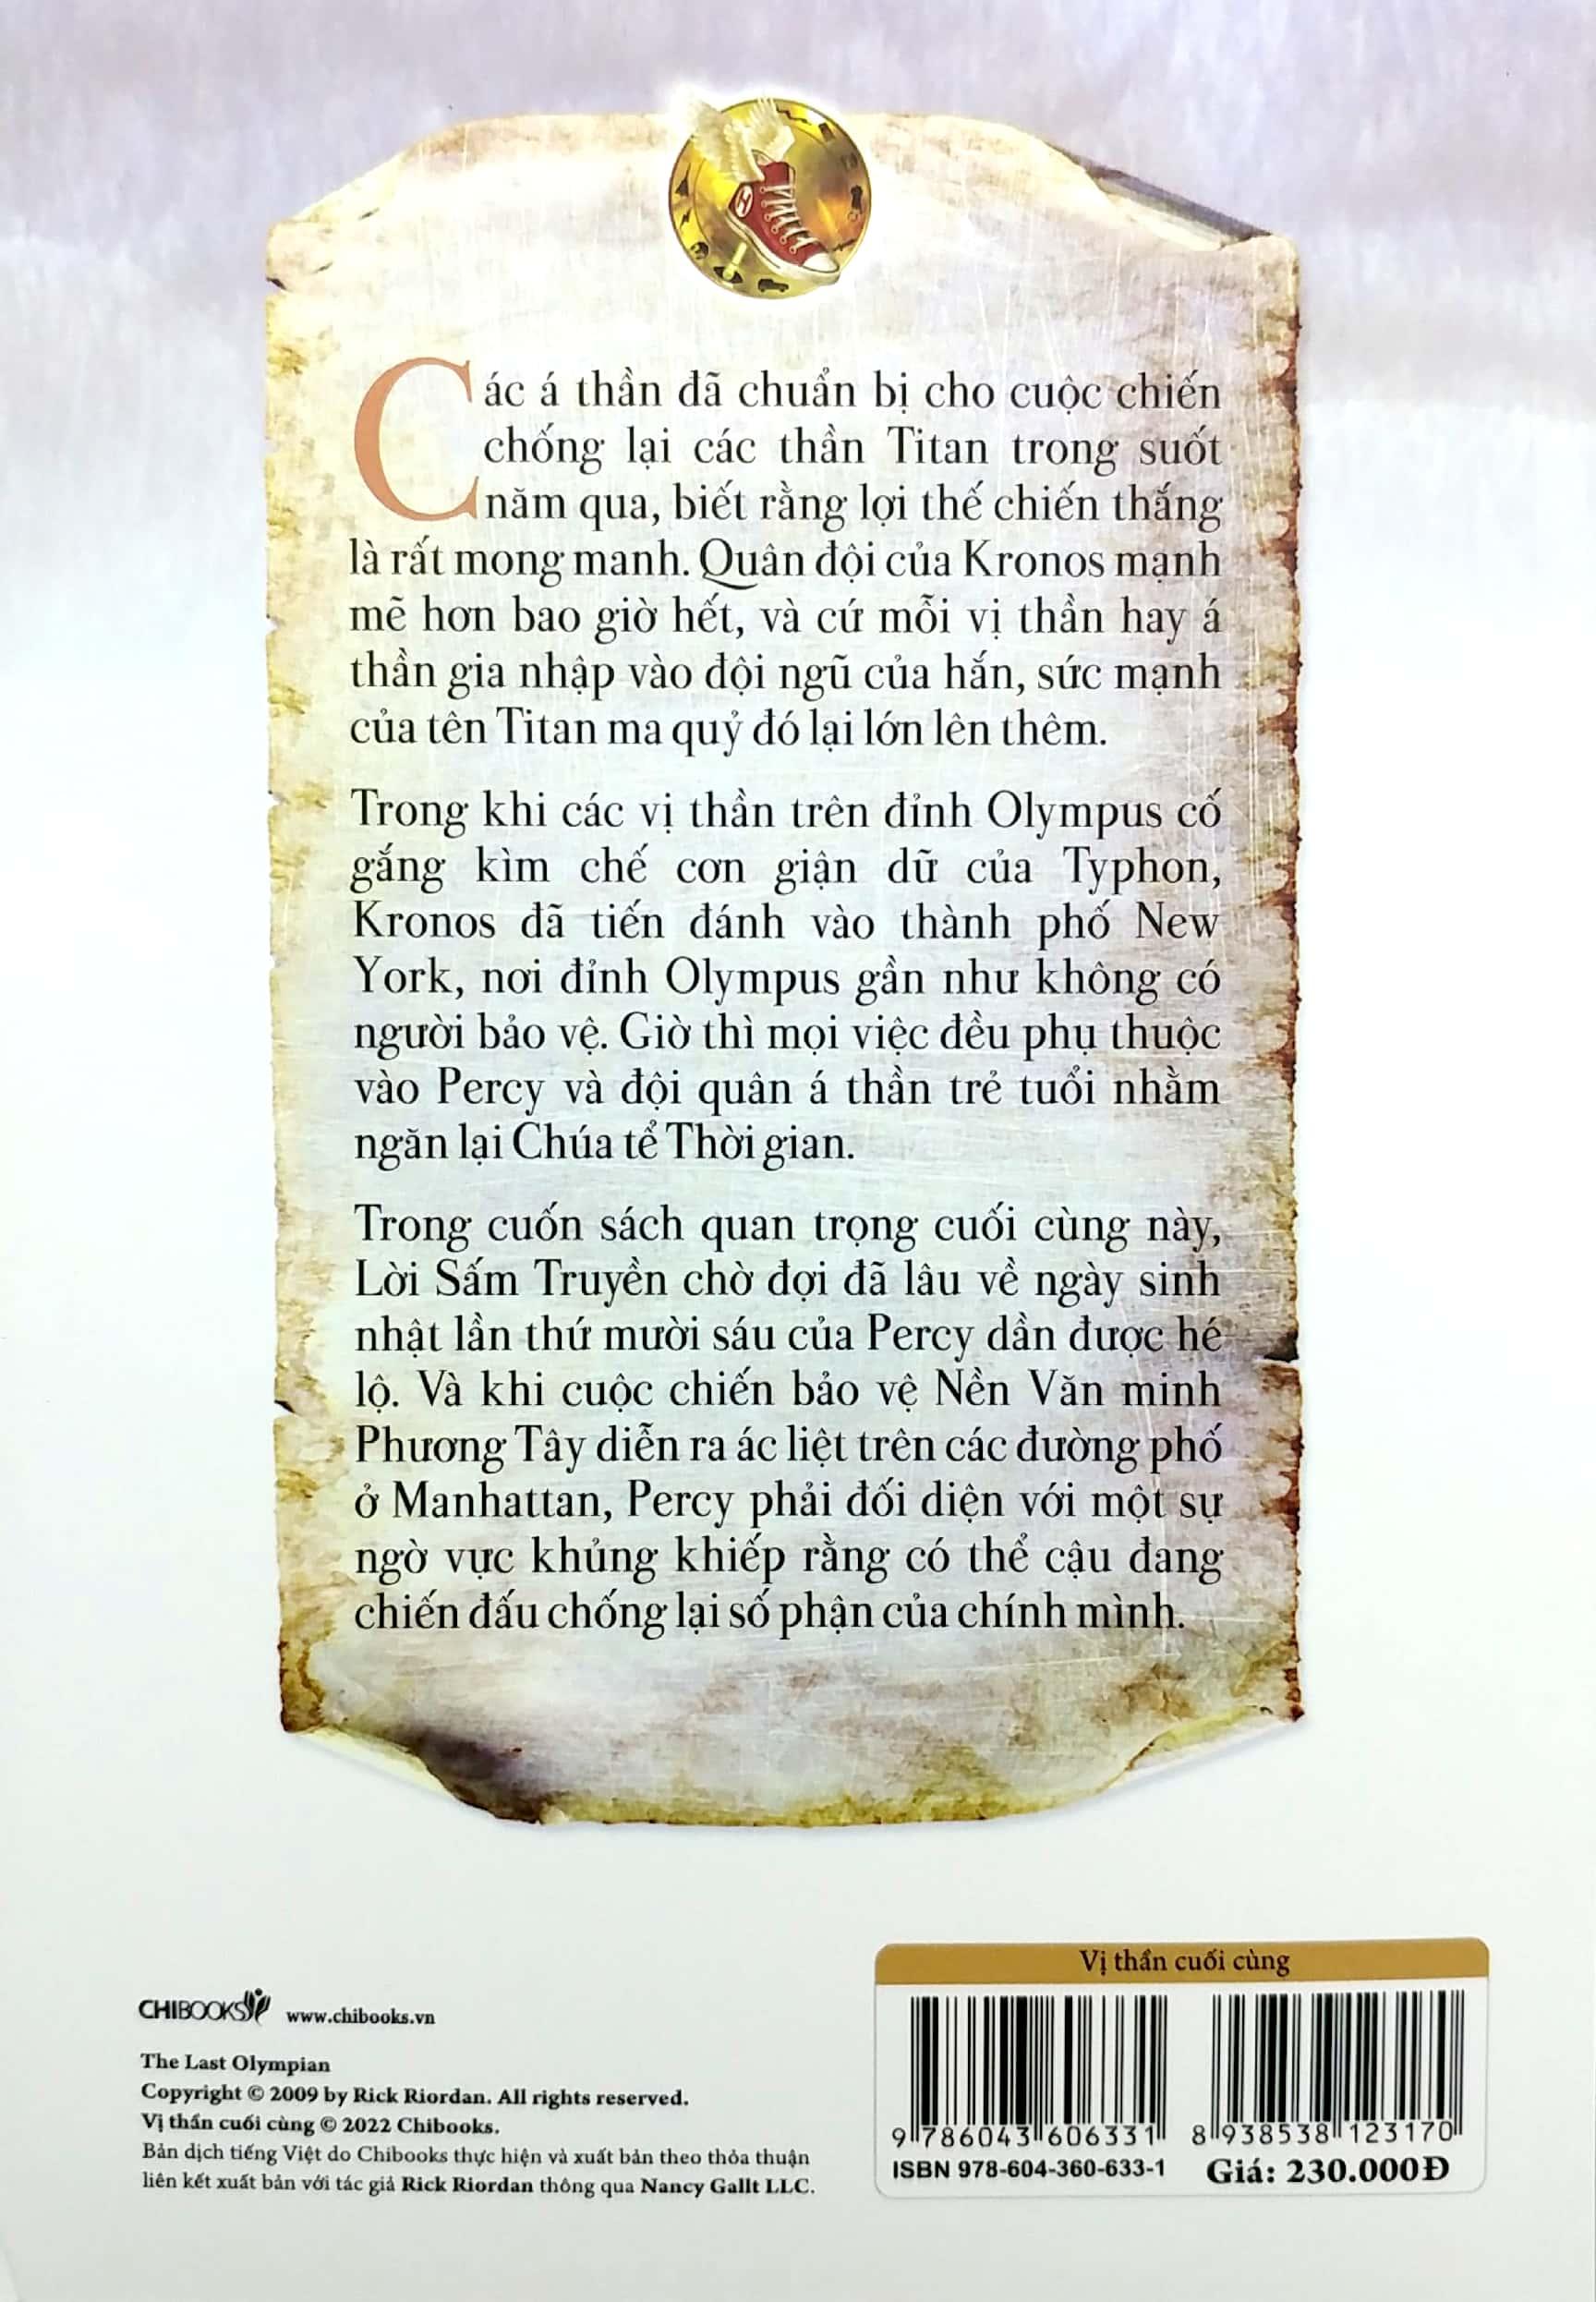 Các á thần đã chuẩn bị cho cuộc chiến
chống lại các thần Titan trong suốt
năm qua, biết rằng lợi thế chiến thắng
là rất mong manh. Quân đội của Kronos mạnh
mẽ hơn bao giờ hết, và cứ mỗi vị thần hay á
thần gia nhập vào đội ngũ của hắn, sức mạnh
của tên Titan ma quỷ đó lại lớn lên thêm.
Trong khi các vị thần trên đỉnh Olympus cố
gắng kìm chế cơn giận dữ của Typhon,
Kronos đã tiến đánh vào thành phố New
York, nơi đỉnh Olympus gần như không có
người bảo vệ. Giờ thì mọi việc đều phụ thuộc
vào Percy và đội quân á thần trẻ tuổi nhằm
ngăn lại Chúa tể Thời gian.
Trong cuốn sách quan trọng cuối cùng này,
Lời Sấm Truyền chờ đợi đã lâu về ngày sinh
nhật lần thứ mười sáu của Percy dần được hé
lộ. Và khi cuộc chiến bảo vệ Nền Văn minh
Phương Tây diễn ra ác liệt trên các đường phố
ở Manhattan, Percy phải đối diện với một sự
ngờ vực khủng khiếp rằng có thể cậu đang
chiến đấu chống lại số phận của chính mình.
CHIBOOKS www.chibooks.vn
The Last Olympian
Copyright © 2009 by Rick Riordan. All rights reserved.
Vị thần cuối cùng © 2022 Chibooks.
Bản dịch tiếng Việt do Chibooks thực hiện và xuất bản theo thỏa thuận
liên kết xuất bản với tác giả Rick Riordan thông qua Nancy Gallt LLC.
Vị thần cuối cùng
9 786043 606331
ISBN 978-604-360-633-1
8 938538 123170
Giá: 230.000Đ